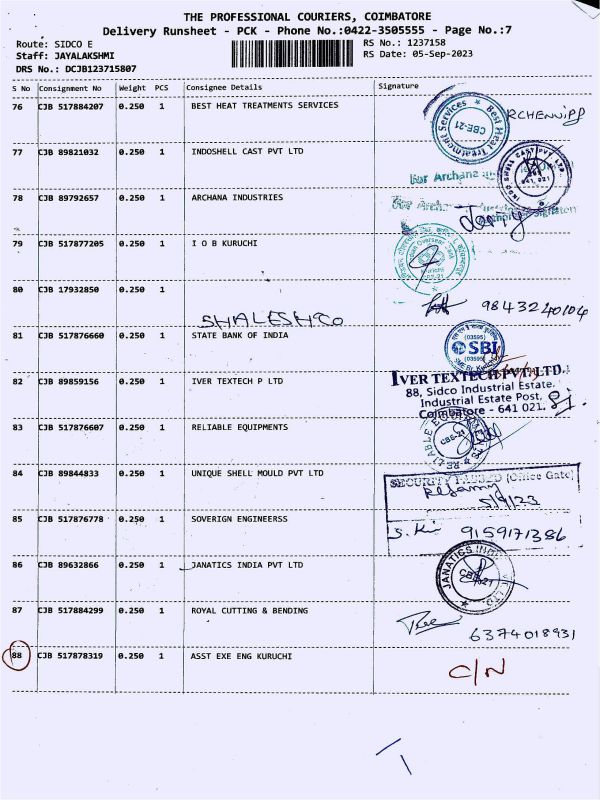 THE PROFESSIONAL COURIERS, COIMBATORE
Delivery Runsheet - PCK - Phone No.:0422-3505555 - Page No.:7
Route: SIDCO E RS No.: 1237158
Staff: JAYALAKSHMI RS Date: 05-Sep-2023
DRS No.: DCJB123715807
S No Consignment No Weight PCS Consignee Details Signature
76 CJB 517884207 0.250 1 BEST HEAT TREATMENTS SERVICES
Best Heat Treatment Services
CBE-21
77 CJB 89821032 0.250 1 INDOSHELL CAST PVT LTD
INDO SHELL CAST PVT. LTD.
641 021
For Archana
78 CJB 89792657 0.250 1 ARCHANA INDUSTRIES
For
79 CJB 517877205 0.250 1 I O B KURUCHI
80 CJB 17932850 0.250 1
9843240104
SHALESHCO
81 CJB 517876660 0.250 1 STATE BANK OF INDIA
(03595)
SBI
82 CJB 89859156 0.250 1 IVER TEXTECH P LTD
IVER TEXTECH PVT. LTD.
88, Sidco Industrial Estate.
Industrial Estate Post,
Coimbatore - 641 021.
83 CJB 517876607 0.250 1 RELIABLE EQUIPMENTS
CBE-21
84 CJB 89844833 0.250 1 UNIQUE SHELL MOULD PVT LTD
SECURITY PASSED (Office Gate)
5/9/23
85 CJB 517876778 0.250 1 SOVERIGN ENGINEERSS
9159171386
86 CJB 89632866 1 0.250 JANATICS INDIA PVT LTD
JANATICS INDIA
87 CJB 517884299 0.250 1 ROYAL CUTTING & BENDING
6374018931
88 CJB 517878319 0.250 1 ASST EXE ENG KURUCHI
C/N